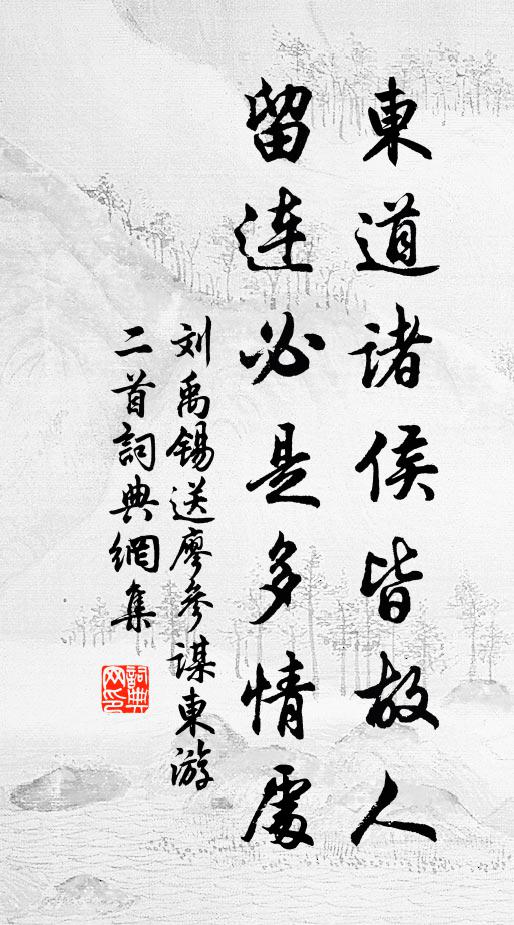 東道諸侯皆故人
留连必是多情處
刘禹锡送廖參謀東游
二首詞典網集
詞典网印